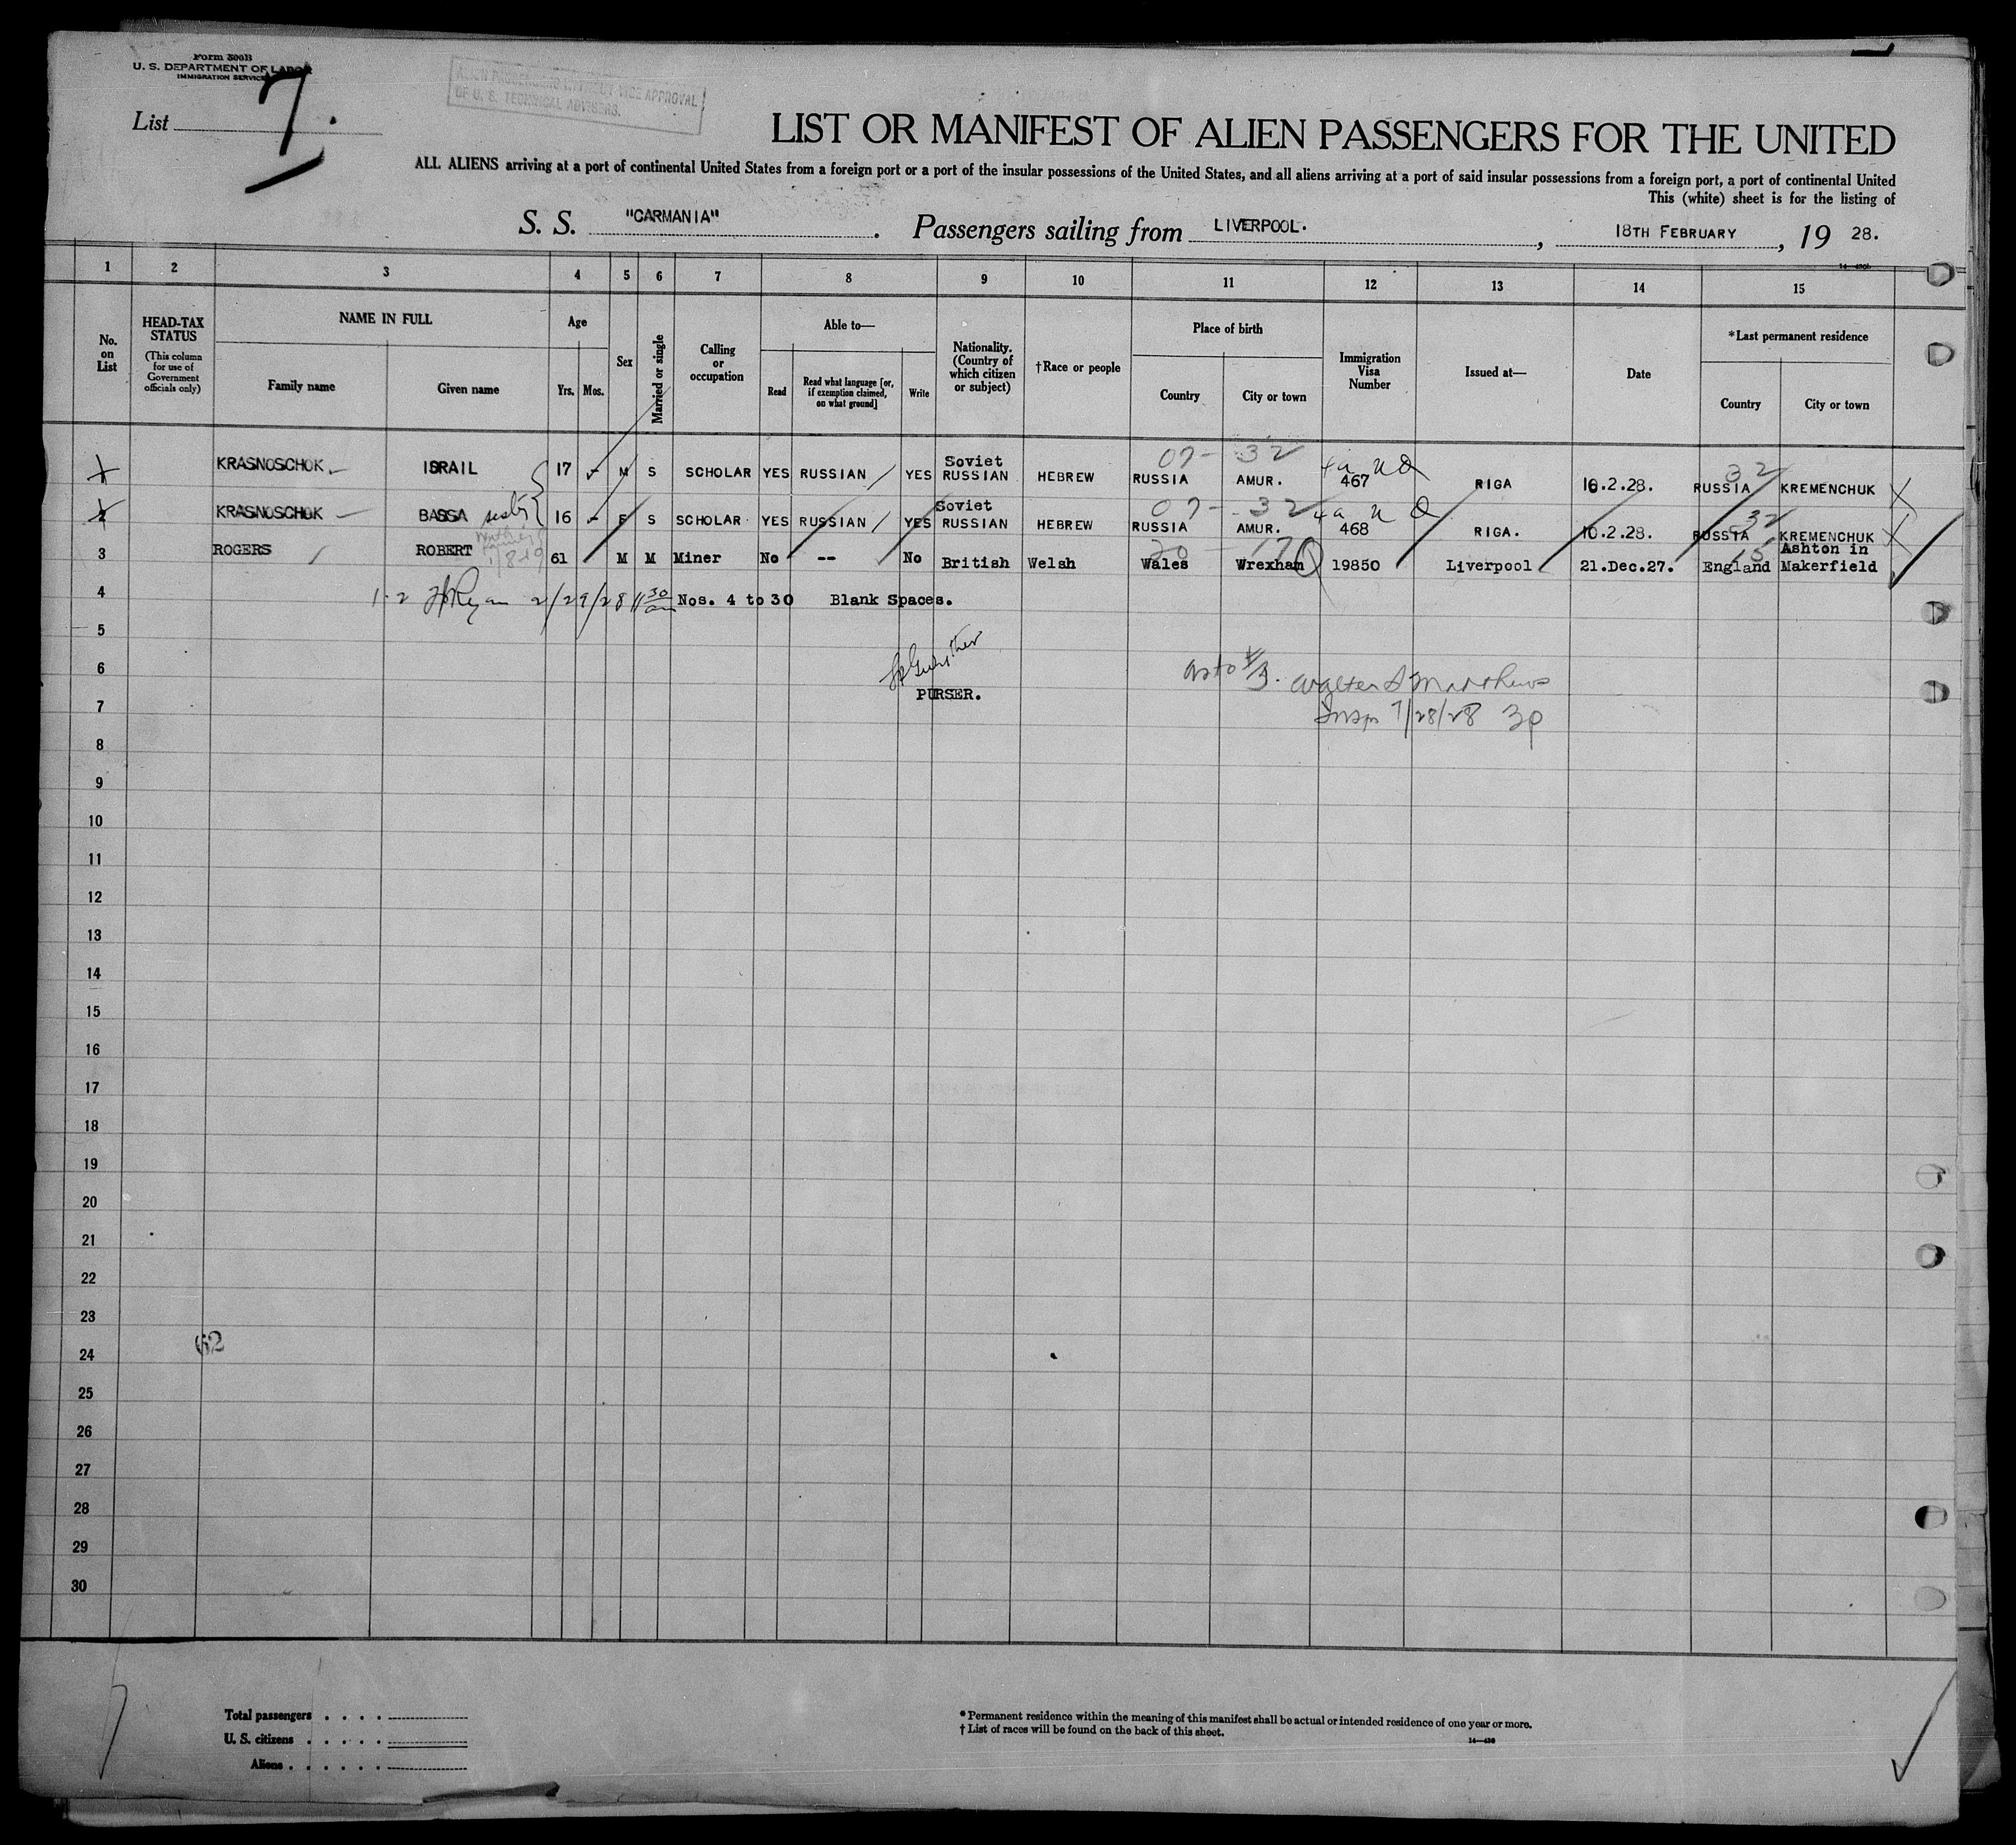 Form 500B
U. S. DEPARTMENT OF LABOR
IMMIGRATION SERVICE
List 7.
ALIEN PASSENGERS WITHOUT VICE APPROVAL
OF U. S. TECHNICAL ADVISERS.
LIST OR MANIFEST OF ALIEN PASSENGERS FOR THE UNITED
ALL ALIENS arriving at a port of continental United States from a foreign port or a port of the insular possessions of the United States, and all aliens arriving at a port of said insular possessions from a foreign port, a port of continental United
This (white) sheet is for the listing of
S. S. "CARMANIA". Passengers sailing from LIVERPOOL., 18TH FEBRUARY, 19 28.
1 2 3 4 5 6 7 8 9 10 11 12 13 14 15
No. on List
HEAD-TAX STATUS
(This column for use of Government officials only)
NAME IN FULL
Family name
Given name
Age
Yrs. Mos.
Sex
Married or single
Calling or occupation
Able to—
Read
Read what language [or, if exemption claimed, on what ground]
Write
Nationality. (Country of which citizen or subject)
†Race or people
Place of birth
Country
City or town
Immigration Visa Number
Issued at—
Date
*Last permanent residence
Country
City or town
07- 32 4a 32
1 KRASNOSCHOK ISRAIL 17 M S SCHOLAR YES RUSSIAN YES Soviet RUSSIAN HEBREW RUSSIA AMUR. 467 RIGA 10.2.28. RUSSIA KREMENCHUK
07- 32 4a 32
2 KRASNOSCHOK BASSA sister 16 F S SCHOLAR YES RUSSIAN YES Soviet RUSSIAN HEBREW RUSSIA AMUR. 468 RIGA. 10.2.28. RUSSIA KREMENCHUK
3 ROGERS ROBERT 61 M M Miner No -- No British Welsh Wales Wrexham 19850 Liverpool 21.Dec.27. England Ashton in Makerfield
4 1-2 Ryan 2/29/28 11 30 am Nos. 4 to 30 Blank Spaces.
5
6 as to #3. Walter S Matthews
PURSER.
7 Insp 7/28/28 3p
8
9
10
11
12
13
14
15
16
17
18
19
20
21
22
23
62
24
25
26
27
28
29
30
Total passengers . . . .
U. S. citizens . . . . .
Aliens . . . . . .
* Permanent residence within the meaning of this manifest shall be actual or intended residence of one year or more.
† List of races will be found on the back of this sheet.